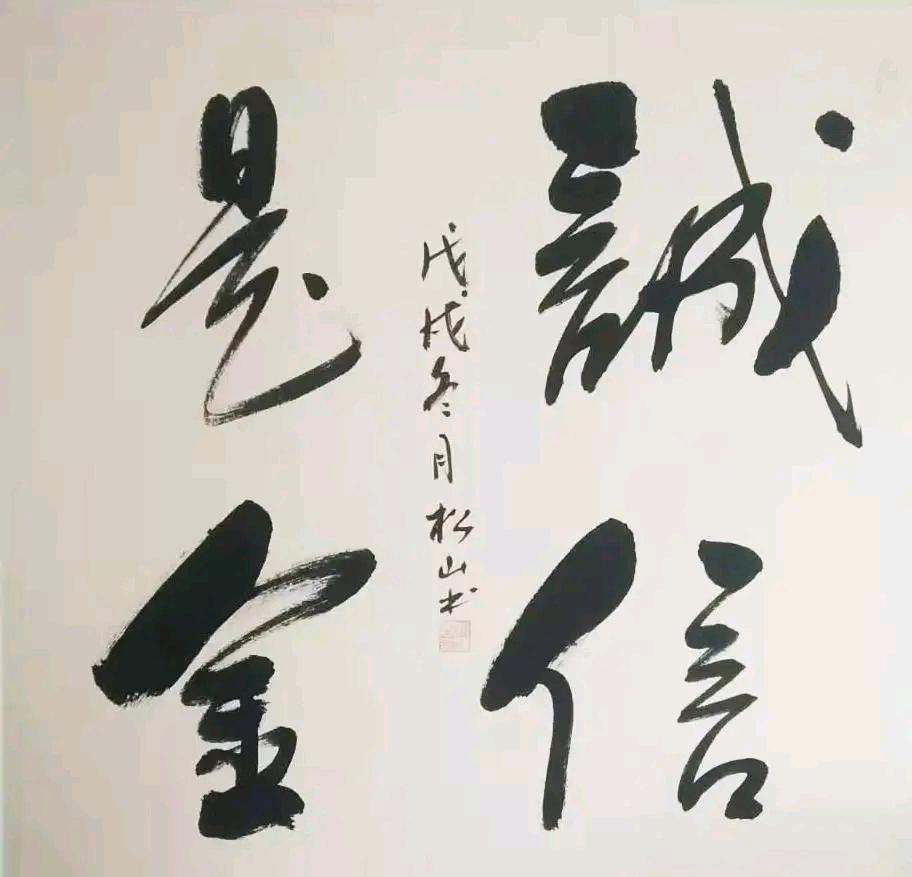 誠信
是金
戊戌冬月松山书